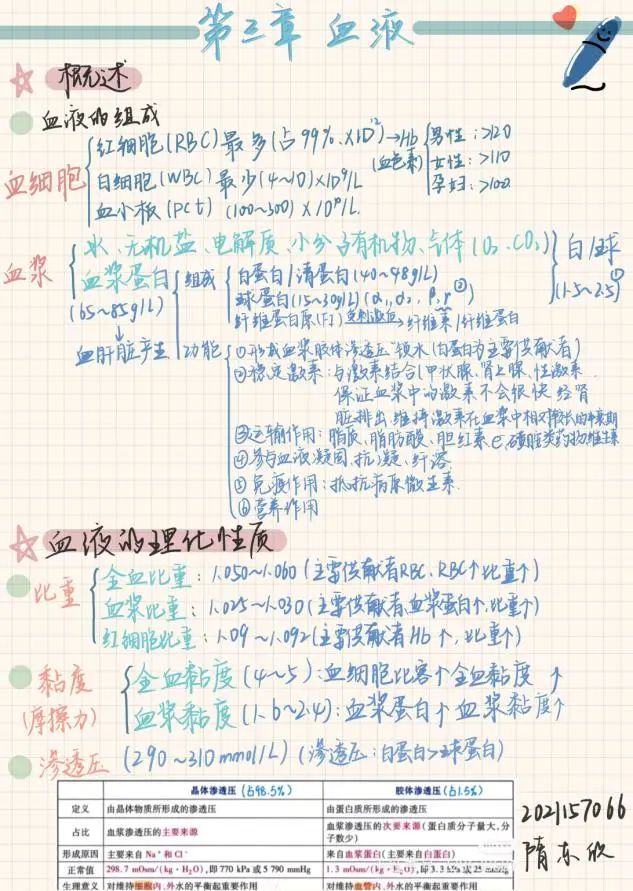 第三章 血液
概述
血液的组成
血细胞
红细胞(RBC)最多(占99%.×10¹²)→Hb(血色素)
男性:>120
女性:>110
孕妇:>100
白细胞(WBC)最少(4~10)×10⁹/L
血小板(PCt)(100~300)×10⁹/L.
血浆
水、无机盐、电解质、小分子有机物、气体(O₂.CO₂)
血浆蛋白
(65~85g/L)
↓
血肝脏产生
白/球①
(1.5~2.5)
组成
白蛋白/清蛋白(40~48g/L)
球蛋白(15~30g/L)(α₁,α₂,β,γ②)
纤维蛋白原(FI)→纤维素/纤维蛋白
功能
①形成血浆胶体渗透压"锁水(白蛋白为主要供献者)
②稳定激素:与激素结合(甲状腺、肾上腺、性激素.
保证血浆中的激素不会很快经肾
脏排出,维持激素在血浆中相对较长的半衰期
③运输作用:脂质、脂肪酸、胆红素 类药物维生素
④参与血液凝固、抗凝、纤溶.
⑤免疫作用:抵抗病原微生素.
⑥营养作用
血液的理化性质
比重
全血比重:1.050~1.060(主要供献者RBC、RBC↑比重↑)
血浆比重:1.025~1.030(主要供献者,血浆蛋白↑,比重↑)
红细胞比重:1.09~1.092(主要供献者Hb↑,比重↑)
黏度
(摩擦力)
全血黏度(4~5):血细胞比容↑全血黏度↑
血浆黏度(1.6~2.4):血浆蛋白↑血浆黏度↑
渗透压(290~310mmol/L)(渗透压:白蛋白>球蛋白)
晶体渗透压(占98.5%) 胶体渗透压(占1.5%)
定义 由晶体物质所形成的渗透压 由蛋白质所形成的渗透压
占比 血浆渗透压的主要来源 血浆渗透压的次要来源(蛋白质分子量大,分子数少)
形成原因 主要来自 Na⁺ 和 Cl⁻ 来自血浆蛋白(主要来自白蛋白)
正常值 298.7 mOsm/(kg·H₂O),即 770 kPa 或 5 790 mmHg 1.3 mOsm/(kg·H₂O),即 3.3 kPa 或 25 mmHg
生理意义 对维持细胞内、外水的平衡起重要作用 对维持血管内、外水的平衡起重要作用
2021157066
隋东欣